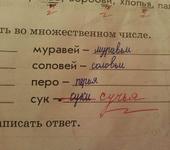 воробьи, хлопья, па
ть во множественном числе.
муравей – муравьи
соловей – соловьи
перо – перья
сук – суки сучья
аписать ответ.